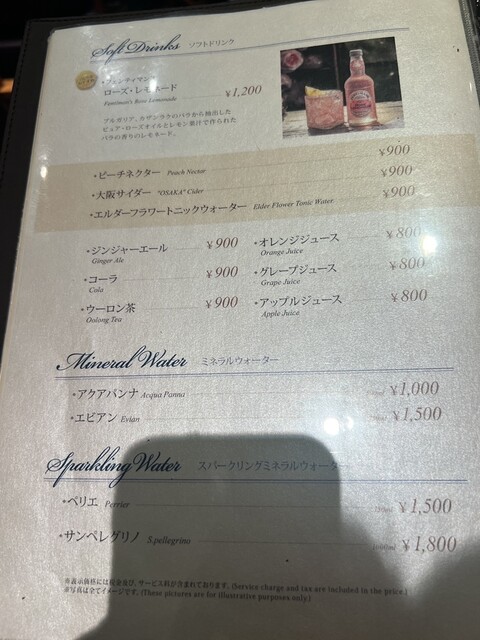 Soft Drinks ソフトドリンク
•フェンティマンス
ローズ・レモネード ¥1,200
Fentiman's Rose Lemonade
ブルガリア、カザンラクのバラから抽出した
ピュア・ローズオイルとレモン果汁で作られた
バラの香りのレモネード。
•ピーチネクター Peach Nectar ¥900
•大阪サイダー "OSAKA" Cider ¥900
•エルダーフラワートニックウォーター Elder Flower Tonic Water ¥900
•ジンジャーエール ¥900 •オレンジジュース ¥800
Ginger Ale Orange Juice
•コーラ ¥900 •グレープジュース ¥800
Cola Grape Juice
•ウーロン茶 ¥900 •アップルジュース ¥800
Oolong Tea Apple Juice
Mineral Water ミネラルウォーター
•アクアパンナ Acqua Panna ¥1,000
•エビアン Evian ¥1,500
Sparkling Water スパークリングミネラルウォーター
•ペリエ Perrier ¥1,500
•サンペレグリノ S.pellegrino ¥1,800
※表示価格には税金及び、サービス料が含まれております。(Service charge and tax are included in the price.)
※写真は全てイメージです。(These pictures are for illustrative purposes only.)